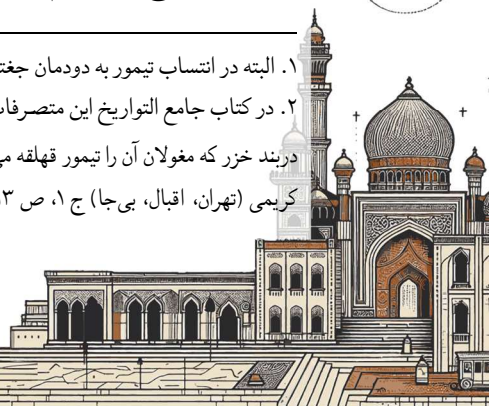 ۱. البته در انتساب تیمور به دودمان
۲. در کتاب جامع التواریخ این متصرفات
دربند خزر که مغولان آن را تیمور قهلقه
کریمی (تهران، اقبال، بی‌جا) ج ۱، ص